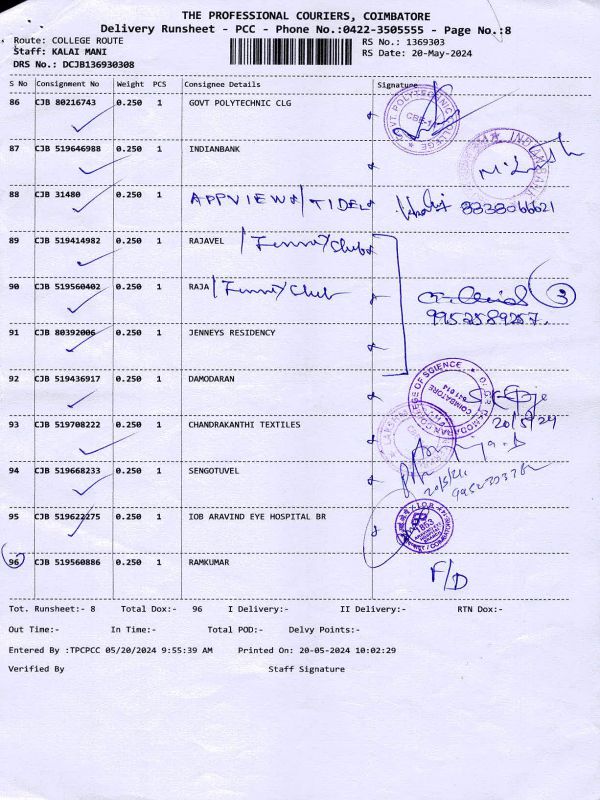 THE PROFESSIONAL COURIERS, COIMBATORE
Delivery Runsheet - PCC - Phone No.:0422-3505555 - Page No.:8
Route: COLLEGE ROUTE RS No.: 1369303
Staff: KALAI MANI RS Date: 20-May-2024
DRS No.: DCJB136930308
S No Consignment No Weight PCS Consignee Details Signature
86 CJB 80216743 0.250 1 GOVT POLYTECHNIC CLG
87 CJB 519646988 0.250 1 INDIANBANK
88 CJB 31480 0.250 1 APPVIEWX/TIDEL 8838066621
89 CJB 519414982 0.250 1 RAJAVEL
90 CJB 519560402 0.250 1 RAJA 3
9952589257.
91 CJB 80392006 0.250 1 JENNEYS RESIDENCY
92 CJB 519436917 0.250 1 DAMODARAN
20/5/24
93 CJB 519708222 0.250 1 CHANDRAKANTHI TEXTILES
94 CJB 519668233 0.250 1 SENGOTUVEL
95 CJB 519622275 0.250 1 IOB ARAVIND EYE HOSPITAL BR
96 CJB 519560886 0.250 1 RAMKUMAR F/D
Tot. Runsheet:- 8 Total Dox:- 96 I Delivery:- II Delivery:- RTN Dox:-
Out Time:- In Time:- Total POD:- Delvy Points:-
Entered By :TPCPCC 05/20/2024 9:55:39 AM Printed On: 20-05-2024 10:02:29
Verified By Staff Signature